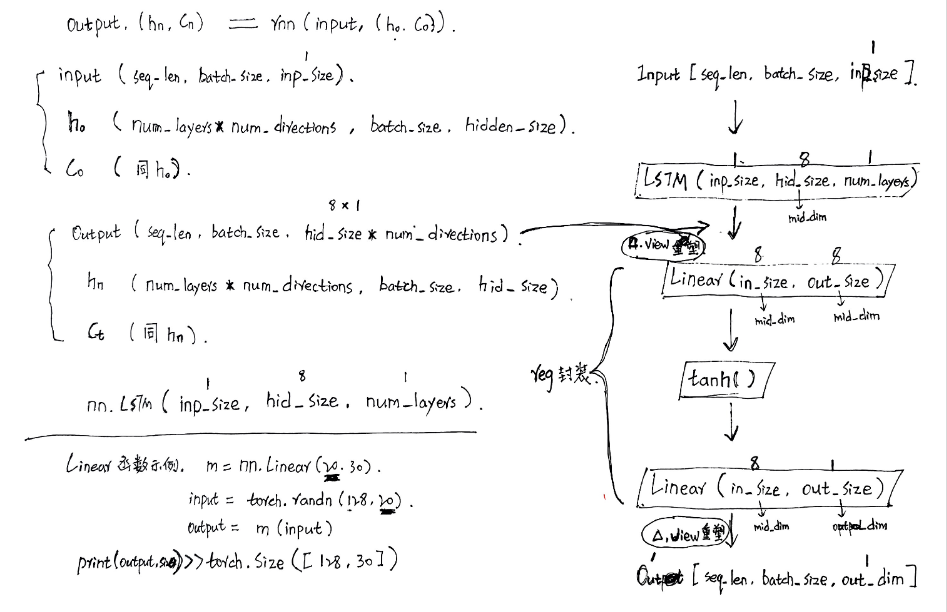 Output, (hn, Cn) = rnn (input, (h0. C0)).
1
input (seq-len, batch-size, inp-size).
h0 (num-layers * num-directions, batch-size, hidden-size).
C0 (同 h0).
8 × 1
Output (seq-len, batch-size, hid-size * num-directions).
hn (num-layers * num-directions, batch-size, hid-size)
Ct (同 hn).
1 8 1
nn.LSTM (inp-size, hid-size, num-layers).
Linear 函数示例, m = nn.Linear (20, 30).
input = torch.randn (128, 20).
output = m (input)
print(output.size) >> torch.Size ([128, 30])
1
Input [seq-len, batch-size, inp-size].
1 8 1
LSTM (inp-size, hid-size, num-layers)
mid-dim
△.view 重塑
8 8
Linear (in-size, out-size)
mid-dim mid-dim
reg 封装.
tanh()
8 1
Linear (in-size, out-size)
mid-dim output-dim
△.view 重塑
1
Output [seq-len, batch-size, out-dim]